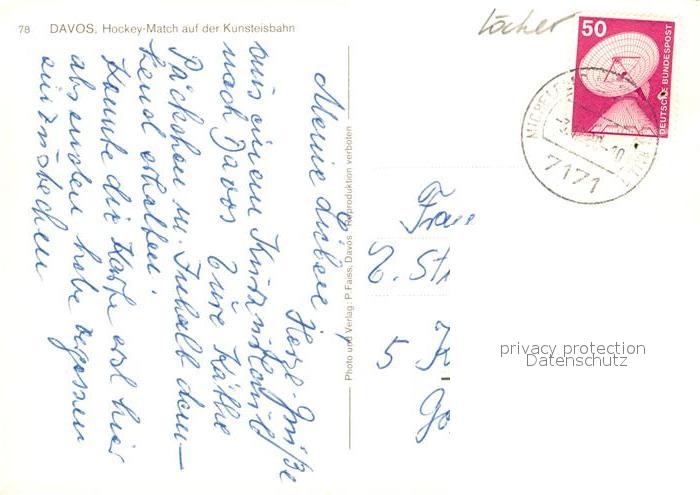 78 DAVOS, Hockey-Match auf der Kunsteisbahn
Löcher
50
DEUTSCHE BUNDESPOST
7171
Meine Lieben!
Herzl. Grüße
aus einem Kurzurlaub
nach Davos Eure Käthe
Päckchen m. Inhalt dan-
kend erhalten.
konnte die Karte erst hier
absenden habe vergessen
einzustecken
Photo und Verlag: P. Faiss, Davos Reproduktion verboten
Frau
St
5
privacy protection
Datenschutz